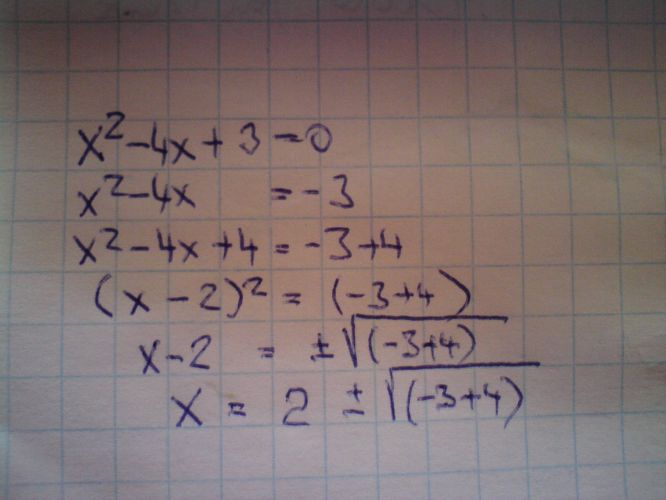 x² - 4x + 3 = 0
x² - 4x = -3
x² - 4x + 4 = -3 + 4
(x - 2)² = (-3 + 4)
x - 2 = ± √(-3 + 4)
x = 2 ± √(-3 + 4)